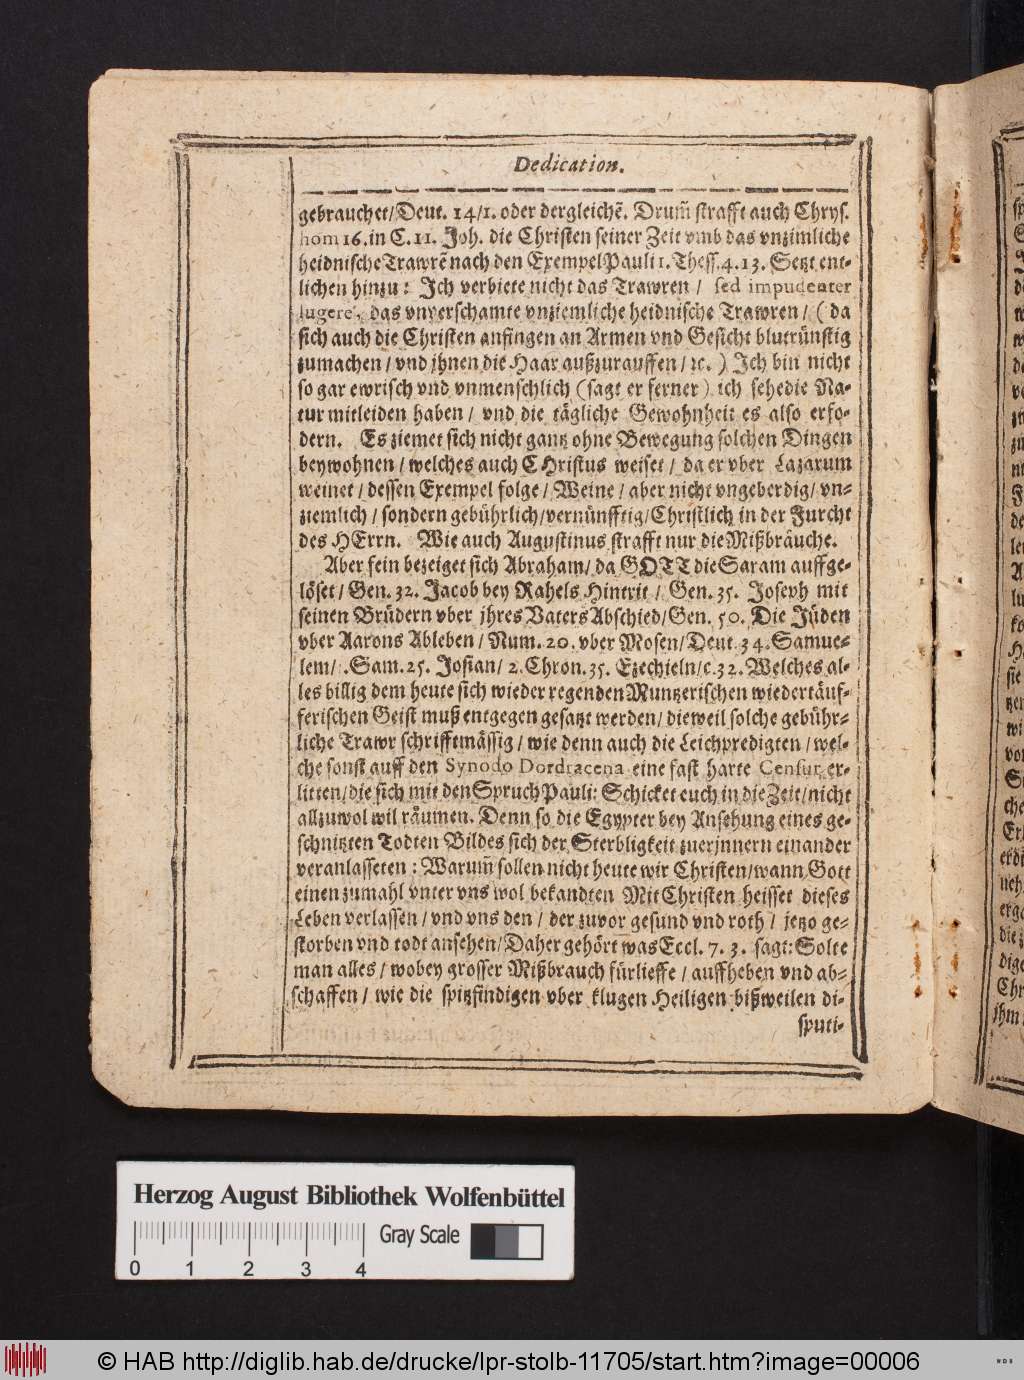 Dedication.
gebrauchet/Deut. 14/1. oder dergleichẽ. Drum̃ strafft auch Chrys.
hom 16. in C. 11. Joh. die Christen seiner Zeit vmb das vnzimliche
heidnische Trawrẽ nach den Exempel Pauli 1. Thess. 4. 13. Setzt ent-
lichen hinzu: Ich verbiete nicht das Trawren / sed impudenter
lugere, das vnverschamte vnziemliche heidnische Trawren / ( da
sich auch die Christen anfingen an Armen vnd Gesicht blutrünstig
zumachen / vnd jhnen die Haar außzurauffen / ꝛc. ) Ich bin nicht
so gar ewrisch vnd vnmenschlich (sagt er ferner) ich sehe die Na-
tur mitleiden haben / vnd die tägliche Gewohnheit es also erfo-
dern. Es ziemet sich nicht gantz ohne Bewegung solchen Dingen
beywohnen / welches auch CHristus weiset / da er vber Lazarum
weinet / dessen Exempel folge / Weine / aber nicht vngeberdig / vn-
ziemlich / sondern gebührlich/vernünfftig/Christlich in der Furcht
des HErrn. Wie auch Augustinus strafft nur die Mißbräuche.
Aber fein bezeiget sich Abraham/ da GOTT die Saram auffge-
löset / Gen. 32. Jacob bey Rahels Hintrit / Gen. 35. Joseph mit
seinen Brüdern vber jhres Vaters Abschied/Gen. 50. Die Jüden
vber Aarons Ableben / Num. 20. vber Mosen/Deut. 34. Samue-
lem/ .Sam. 25. Josian/ 2. Chron. 35. Ezechieln/c. 32. Welches al-
les billig dem heute sich wieder regenden Muntzerischen wiedertäuf-
ferischen Geist muß entgegen gesatzt werden/ dieweil solche gebühr-
liche Trawr schrifftmässig / wie denn auch die Leichpredigten / wel-
che sonst auff den Synodo Dordracena eine fast harte Censur er-
litten/die sich mit den Spruch Pauli: Schicket euch in die Zeit/nicht
allzuwol wil räumen. Denn so die Egypter bey Ansehung eines ge-
schnitzten Todten Bildes sich der Sterbligkeit zuerjnnern einander
veranlasseten: Warum̃ sollen nicht heute wir Christen/wann Gott
einen zumahl vnter vns wol bekandten MitChristen heisset dieses
Leben verlassen / vnd vns den / der zuvor gesund vnd roth / jetzo ge-
storben vnd todt ansehen/Daher gehört was Eccl. 7. 3. sagt: Solte
man alles / wobey grosser Mißbrauch fürlieffe / auffheben vnd ab-
schaffen / wie die spitzfindigen vber klugen Heiligen bißweilen di-
sputi-
Herzog August Bibliothek Wolfenbüttel
0 1 2 3 4
Gray Scale
© HAB http://diglib.hab.de/drucke/lpr-stolb-11705/start.htm?image=00006